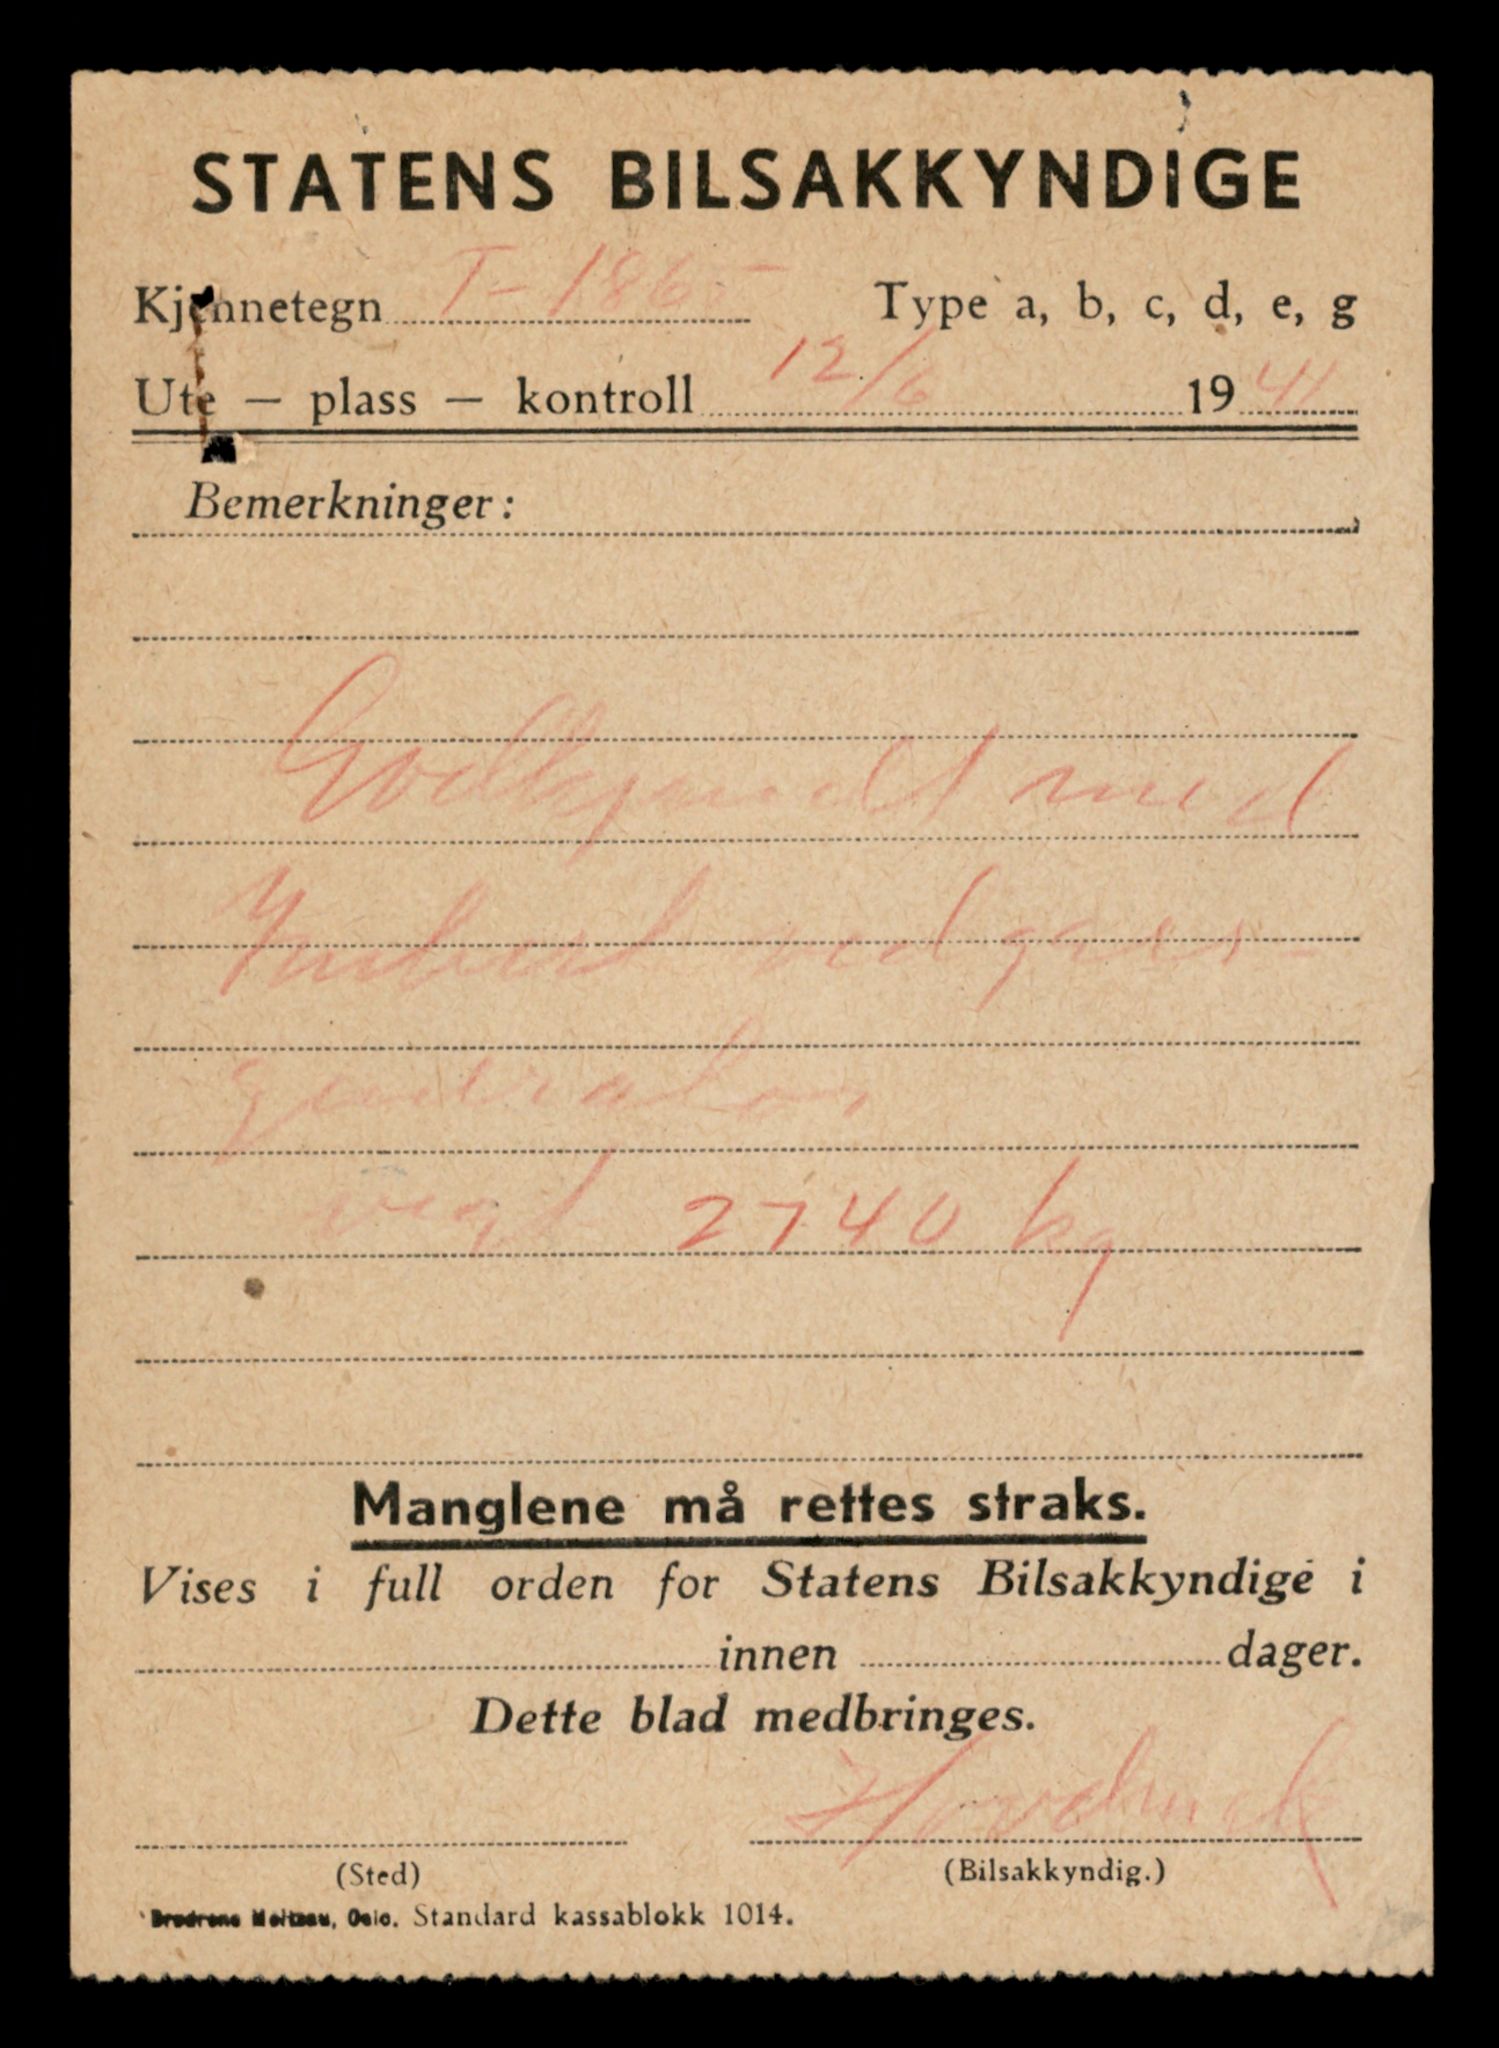 STATENS BILSAKKYNDIGE
Kjennetegn T-1865 Type a, b, c, d, e, g
Ute — plass — kontroll 12/6 1941
Bemerkninger:
Godkjendt med
vedgass-
generator
vegt 2740 kg
Manglene må rettes straks.
Vises i full orden for Statens Bilsakkyndige i
innen dager.
Dette blad medbringes.
(Sted) (Bilsakkyndig.)
Brødrene Meltzau, Oslo. Standard kassablokk 1014.